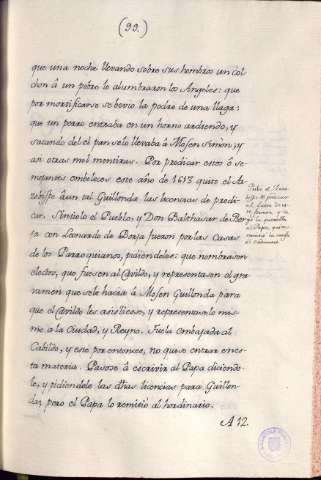 (99.)
que una noche llevando sobre sus hombros un col
chon à un pobre le alumbraron los Angeles: que
por mortificarse se bevio la podre de una llaga:
que un perro entraba en un horno ardiendo, y
sacando del el pan selo llevaba à Mosen Simon; y
asi otras mil mentiras. Por predicar estos ô se-
mejantes embelecos este año de 1613 quito el Ar-
zobispo âun tal Guillonda las licencias de predi-
car. Sintiolo el Pueblo, y Don Balthasar de Bor
ja con Leonardo de Borja fueron por las Casas
de los Parroquianos, pidiendoles: que nombrasen
electos, que fuesen al Cavildo, y representasen el gra
vamen que sele hacia â Mosen Guillonda para
que el Cavildo les asistiese, y representaron lo mis-
mo a la Ciudad, y Reyno. Fuela embajada al
Cabildo, y este por entonces, no quiso entrar enes-
ta materia. Pasose â escrivir al Papa diciendo-
le, y pidiendole las dhas licencias para Guillon-
da; pero el Papa lo remitio al hordinario.
A 12.